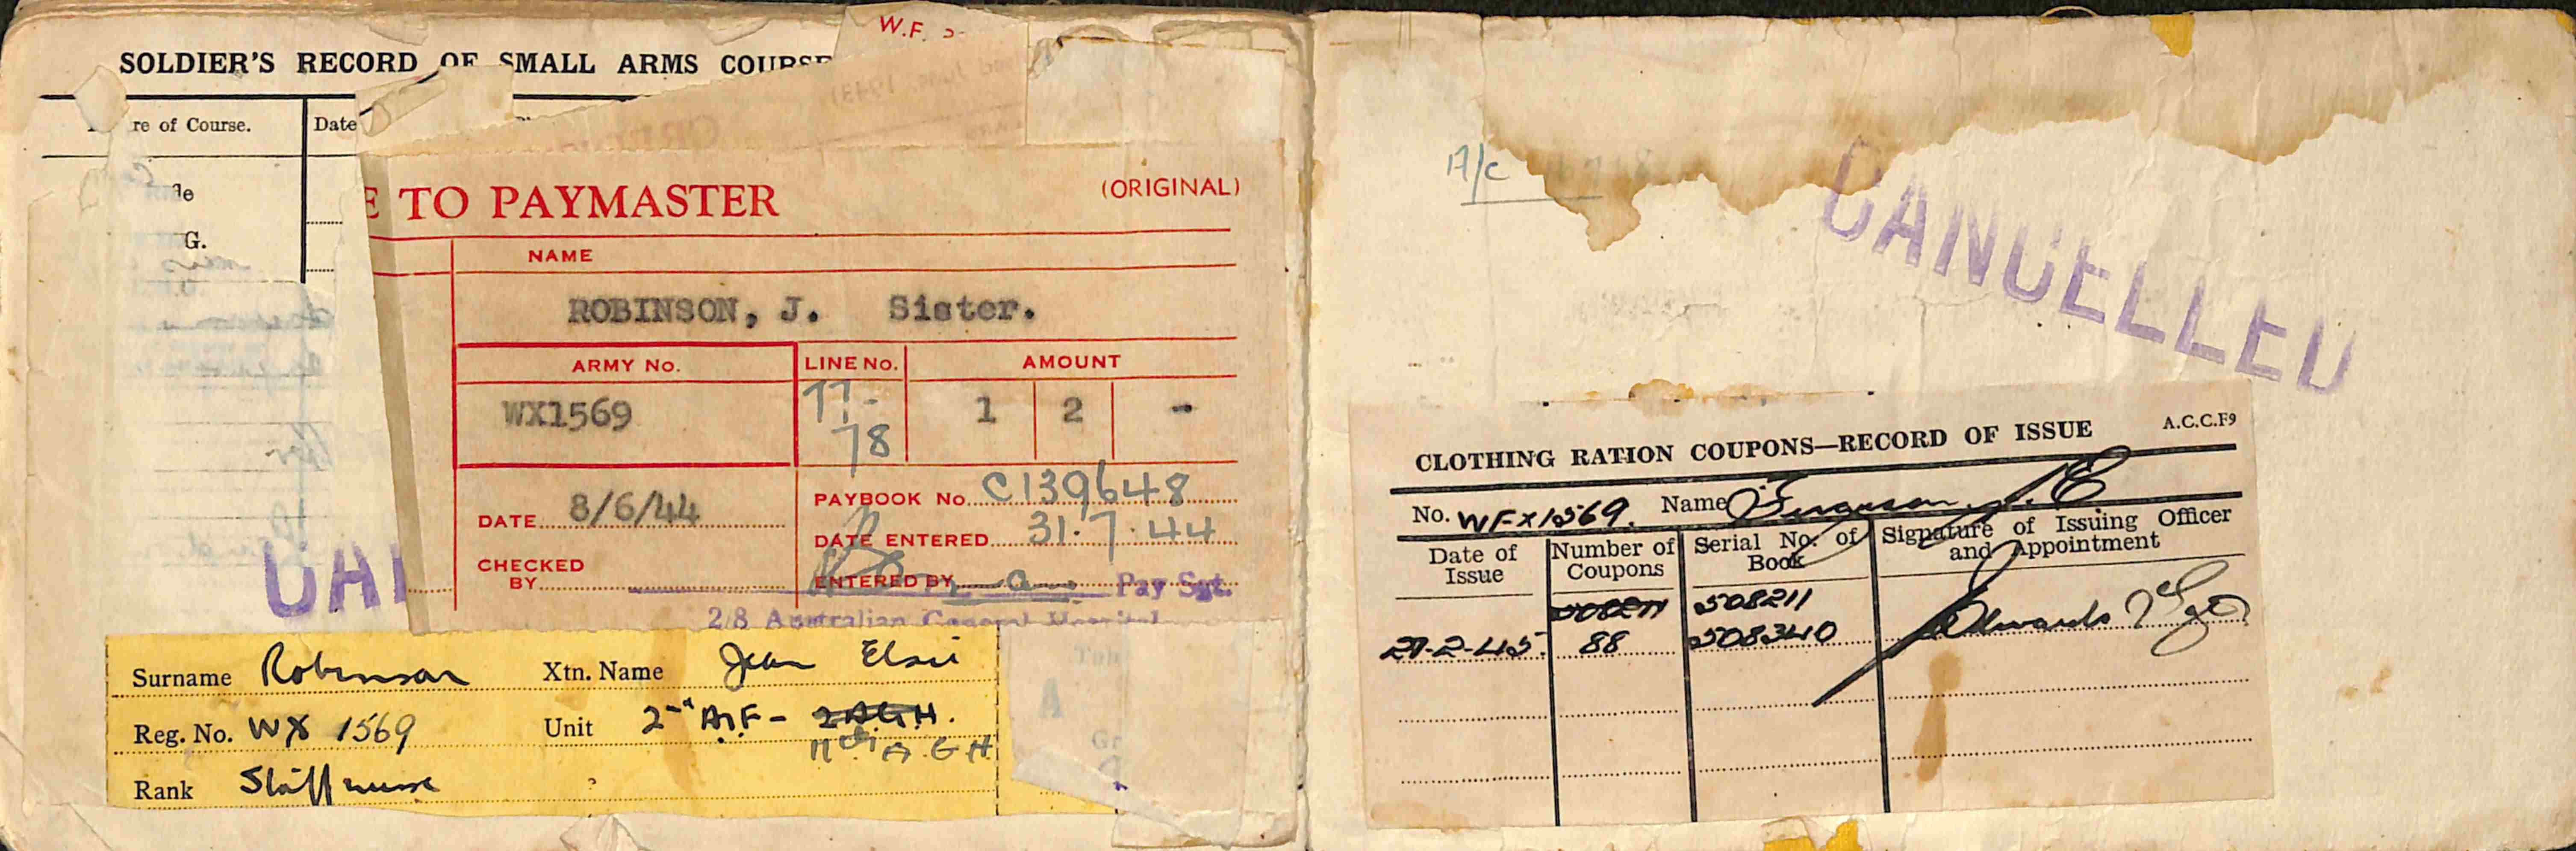 SOLDIER'S RECORD OF SMALL ARMS COURSE
W.F.
re of Course. Date
G.
E TO PAYMASTER (ORIGINAL)
NAME
ROBINSON, J. Sister.
ARMY No. LINE No. AMOUNT
WX1569 77- 1 2 -
78
PAYBOOK No. C139648
DATE 8/6/44
DATE ENTERED 31.7.44
CHECKED
BY
ENTERED BY Pay Sgt.
2/8 Australian General Hospital
CAN
Surname Robinson Xtn. Name Jean Elsie
Reg. No. WX 1569 Unit 2nd A.I.F - 2AGH.
11th A.G.H.
Rank Staff nurse
A/c
CANCELLED
A.C.C.F9
CLOTHING RATION COUPONS—RECORD OF ISSUE
No. WFX1569. Name Ferguson. J. E
Date of Issue Number of Coupons Serial No. of Book Signature of Issuing Officer and Appointment
508211 508211
27-2-45. 88 508340 Edwards